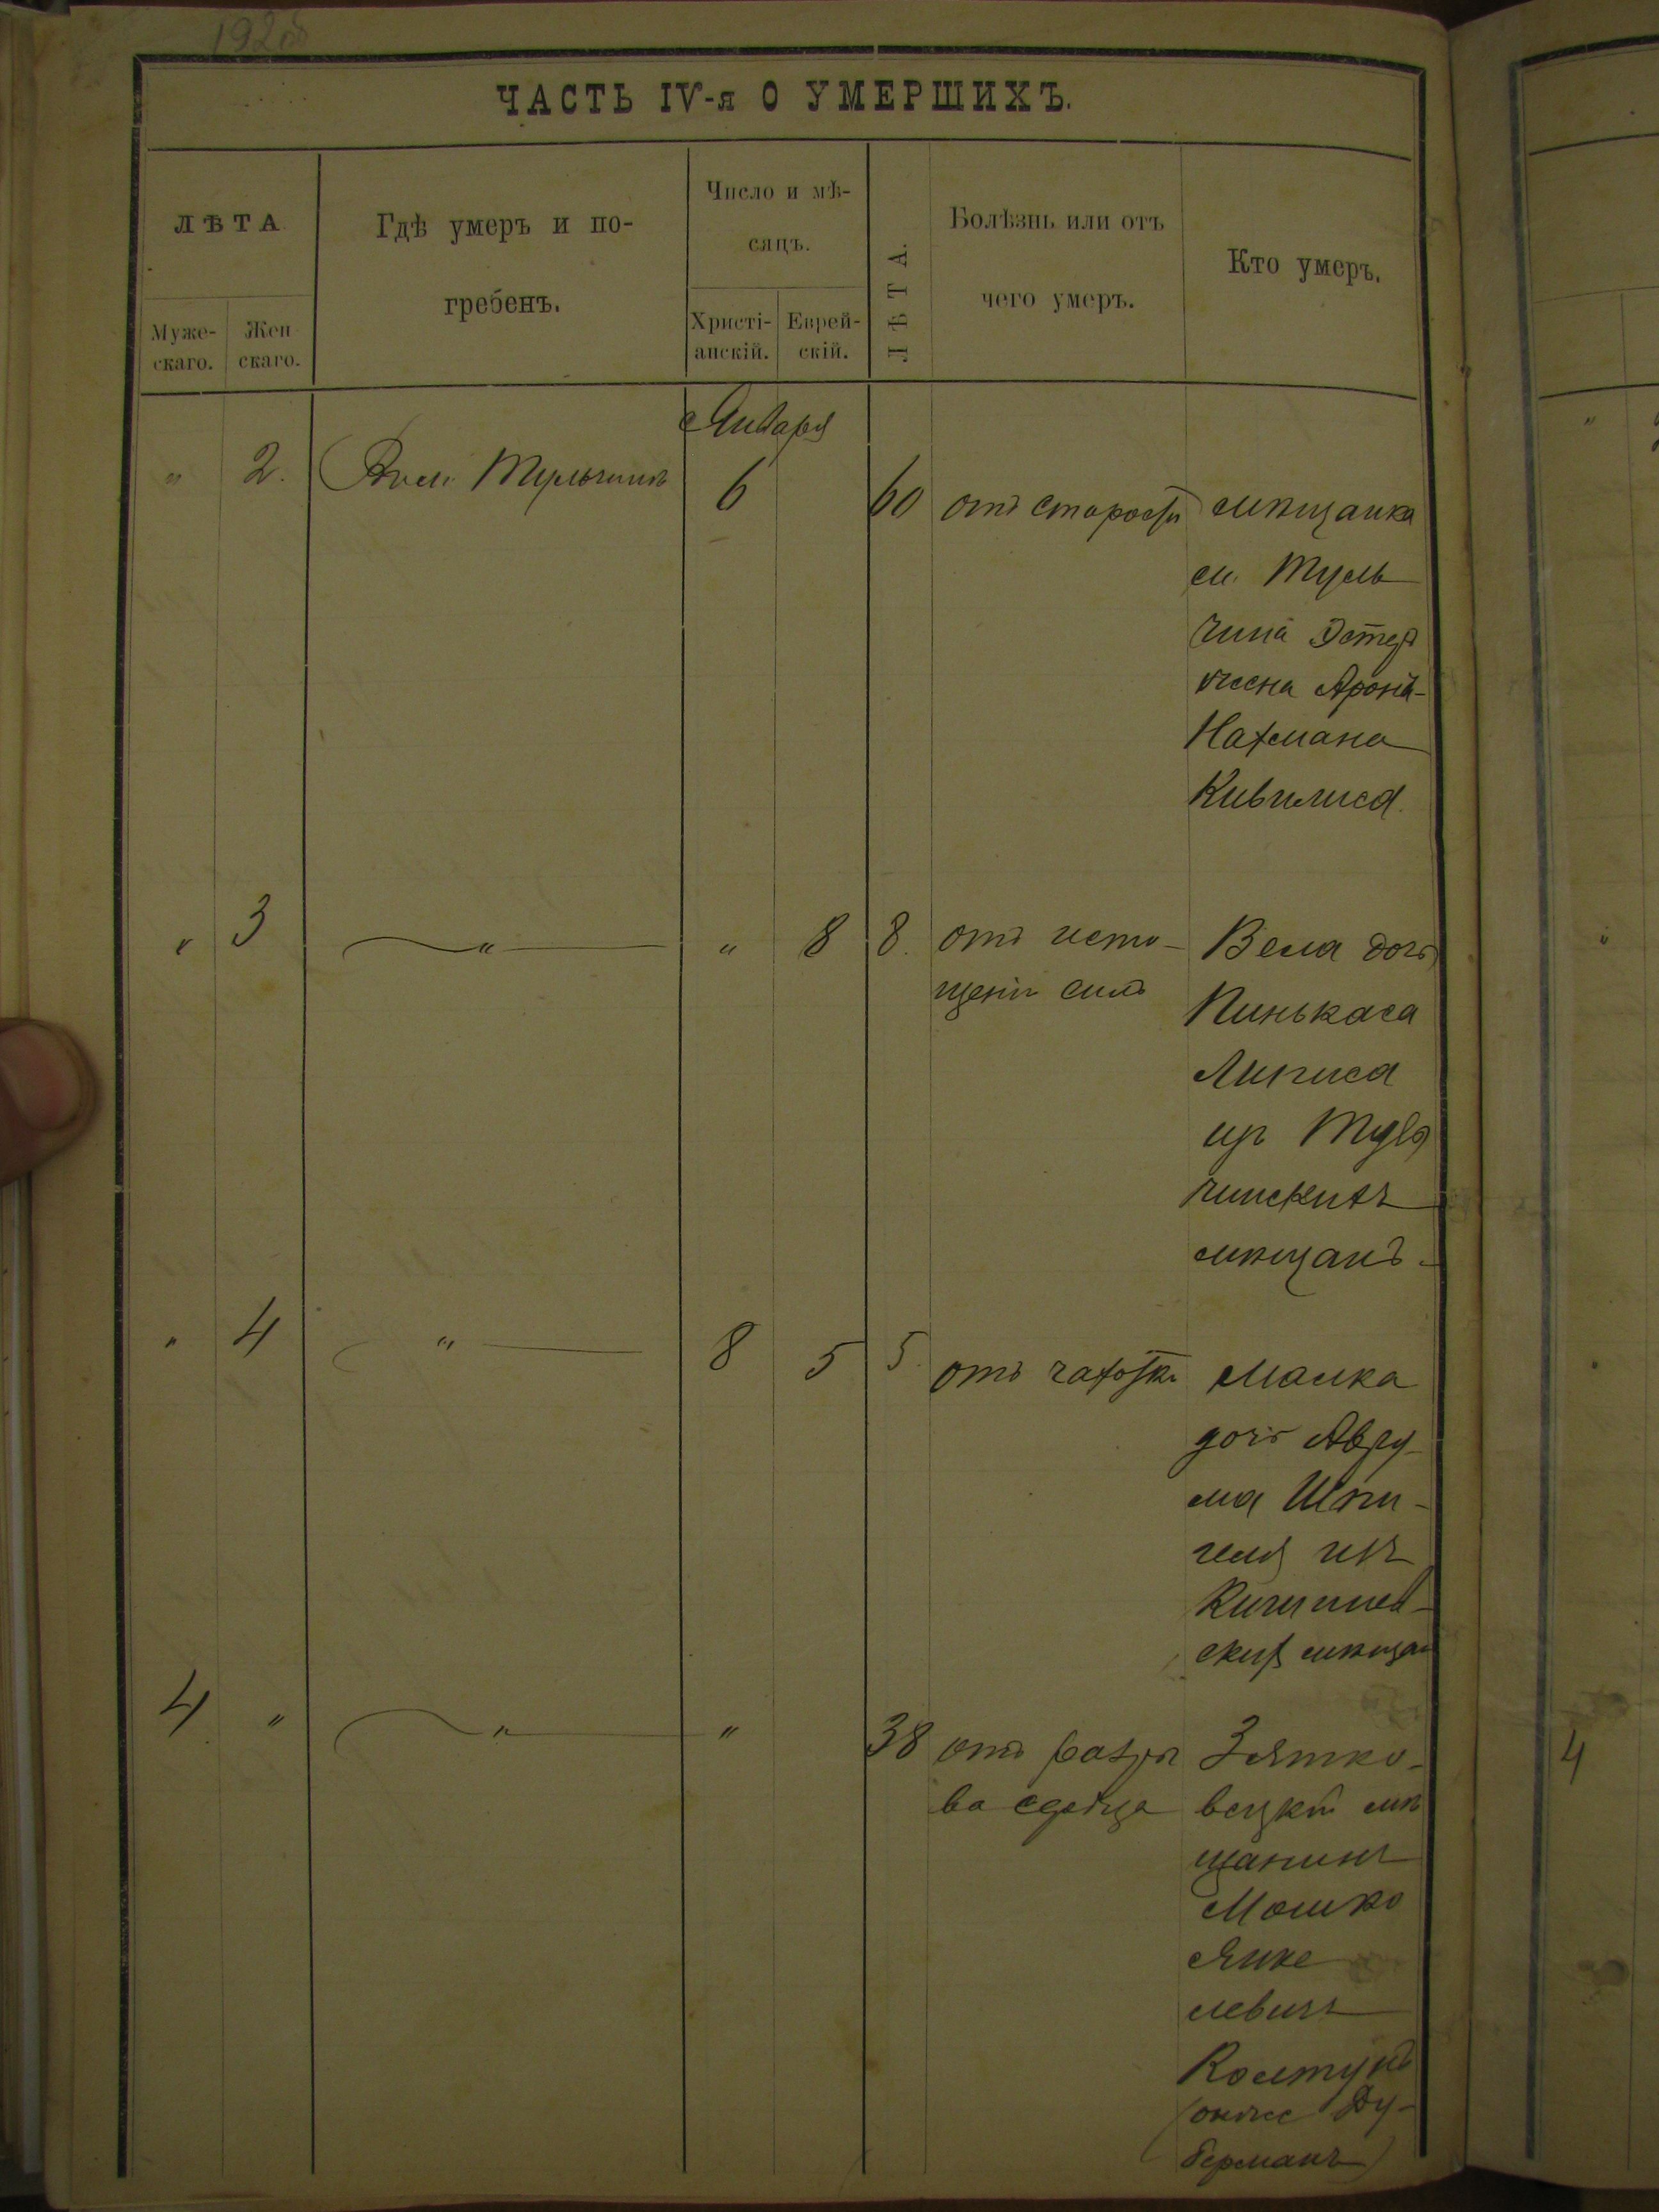 192об
ЧАСТЬ IV-я О УМЕРШИХЪ.
ЛѢТА
Муже-
скаго.
Жен
скаго.
Гдѣ умеръ и по-
гребенъ.
Число и мѣ-
сяцъ.
Христі-
анскій.
Еврей-
скій.
ЛѢТА.
Болѣзнь или отъ
чего умеръ.
Кто умеръ.
Января
" 2. Тульчинѣ 6 60 отъ старости мѣщанка
м. Туль
чина Эстер
жена Арона-
Нахмана
Кивилиса
" 3 " " 8 8. отъ исто-
щенія силъ
Вела дочь
Пинькаса
Липиса
Туль
чинскихъ
мѣщанъ.
" 4 " 8 5 5. отъ чахотки
Малка
дочь Авру-
ма Шпи-
геля изъ
Кишинев-
скихъ мѣщан
4 " " " 38 отъ разры
ва сердца
Зятко-
вецкій мѣ
щанинъ
Мошко
Янке
левичъ
Колтунъ
(онже Ду-
берманъ)
"
"
4